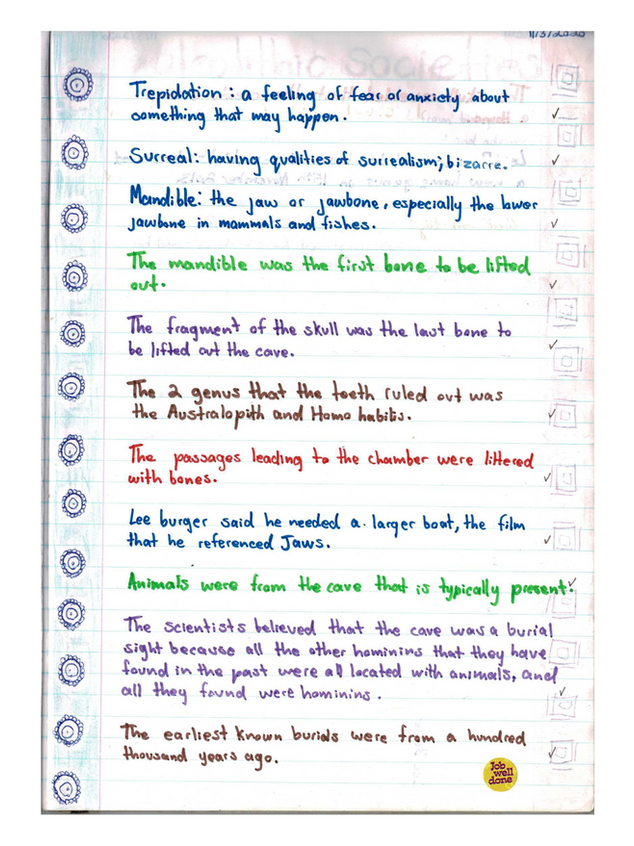 11/3/2020
Trepidation : a feeling of fear or anxiety about
something that may happen.
Surreal: having qualities of surrealism; bizarre.
Mandible: the jaw or jawbone, especially the lower
jawbone in mammals and fishes.
The mandible was the first bone to be lifted
out.
The fragment of the skull was the last bone to
be lifted out the cave.
The 2 genus that the teeth ruled out was
the Australopith and Homo habilis.
The passages leading to the chamber were littered
with bones.
Lee burger said he needed a larger boat, the film
that he referenced Jaws.
Animals were from the cave that is typically present.
The scientists believed that the cave was a burial
sight because all the other hominins that they have
found in the past were all located with animals, and
all they found were hominins.
The earliest known burials were from a hundred
thousand years ago.
Job
well
done